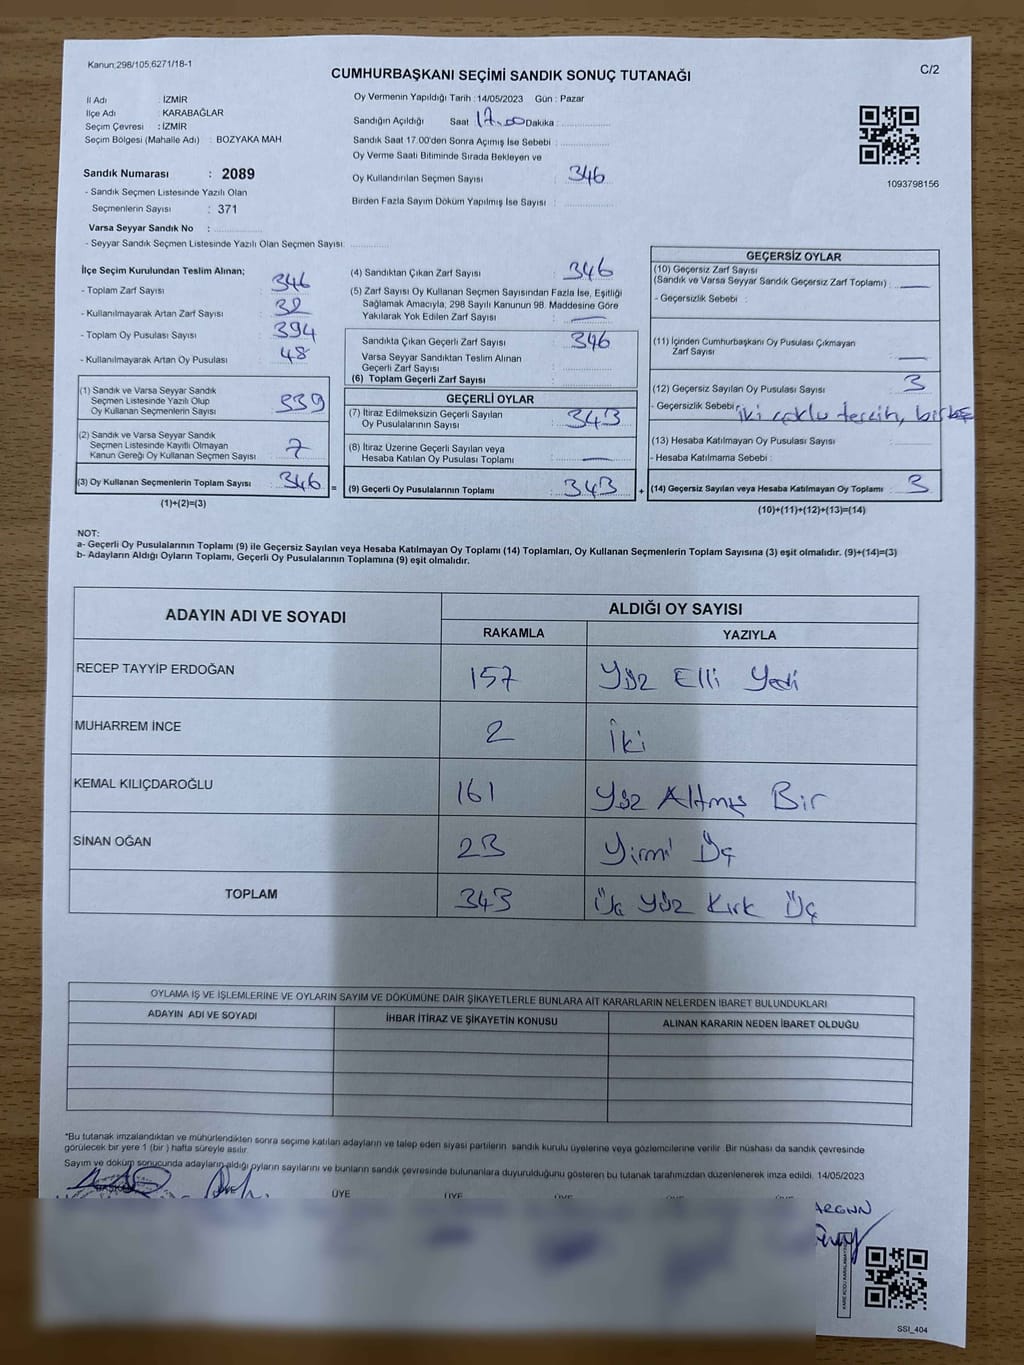 Kanun:298/105,6271/18-1
CUMHURBAŞKANI SEÇİMİ SANDIK SONUÇ TUTANAĞI
C/2
İl Adı : İZMİR
İlçe Adı : KARABAĞLAR
Seçim Çevresi : İZMİR
Seçim Bölgesi (Mahalle Adı) : BOZYAKA MAH
Sandık Numarası : 2089
- Sandık Seçmen Listesinde Yazılı Olan
Seçmenlerin Sayısı : 371
Varsa Seyyar Sandık No :
- Seyyar Sandık Seçmen Listesinde Yazılı Olan Seçmen Sayısı:
Oy Vermenin Yapıldığı Tarih : 14/05/2023 Gün : Pazar
Sandığın Açıldığı Saat : 17.00 Dakika :
Sandık Saat 17.00'den Sonra Açımış İse Sebebi :
Oy Verme Saati Bitiminde Sırada Bekleyen ve
Oy Kullandırılan Seçmen Sayısı : 346
Birden Fazla Sayım Döküm Yapılmış İse Sayısı :
1093798156
İlçe Seçim Kurulundan Teslim Alınan;
- Toplam Zarf Sayısı : 346
- Kullanılmayarak Artan Zarf Sayısı : 32
- Toplam Oy Pusulası Sayısı : 394
- Kullanılmayarak Artan Oy Pusulası : 48
(1) Sandık ve Varsa Seyyar Sandık
Seçmen Listesinde Yazılı Olup
Oy Kullanan Seçmenlerin Sayısı : 339
(2) Sandık ve Varsa Seyyar Sandık
Seçmen Listesinde Kayıtlı Olmayan
Kanun Gereği Oy Kullanan Seçmen Sayısı : 7
(3) Oy Kullanan Seçmenlerin Toplam Sayısı : 346 =
(1)+(2)=(3)
(4) Sandıktan Çıkan Zarf Sayısı : 346
(5) Zarf Sayısı Oy Kullanan Seçmen Sayısından Fazla İse, Eşitliği
Sağlamak Amacıyla; 298 Sayılı Kanunun 98. Maddesine Göre
Yakılarak Yok Edilen Zarf Sayısı : —
Sandıkta Çıkan Geçerli Zarf Sayısı : 346
Varsa Seyyar Sandıktan Teslim Alınan
Geçerli Zarf Sayısı :
(6) Toplam Geçerli Zarf Sayısı :
GEÇERLİ OYLAR
(7) İtiraz Edilmeksizin Geçerli Sayılan
Oy Pusulalarının Sayısı : 343
(8) İtiraz Üzerine Geçerli Sayılan veya
Hesaba Katılan Oy Pusulası Toplamı : —
(9) Geçerli Oy Pusulalarının Toplamı : 343 +
GEÇERSİZ OYLAR
(10) Geçersiz Zarf Sayısı
(Sandık ve Varsa Seyyar Sandık Geçersiz Zarf Toplamı) : —
- Geçersizlik Sebebi :
(11) İçinden Cumhurbaşkanı Oy Pusulası Çıkmayan
Zarf Sayısı : —
(12) Geçersiz Sayılan Oy Pusulası Sayısı : 3
- Geçersizlik Sebebi : iki çoklu tercih,
(13) Hesaba Katılmayan Oy Pusulası Sayısı :
- Hesaba Katılmama Sebebi :
(14) Geçersiz Sayılan veya Hesaba Katılmayan Oy Toplamı : 3
(10)+(11)+(12)+(13)=(14)
NOT:
a- Geçerli Oy Pusulalarının Toplamı (9) ile Geçersiz Sayılan veya Hesaba Katılmayan Oy Toplamı (14) Toplamları, Oy Kullanan Seçmenlerin Toplam Sayısına (3) eşit olmalıdır. (9)+(14)=(3)
b- Adayların Aldığı Oyların Toplamı, Geçerli Oy Pusulalarının Toplamına (9) eşit olmalıdır.
ADAYIN ADI VE SOYADI
ALDIĞI OY SAYISI
RAKAMLA
YAZIYLA
RECEP TAYYİP ERDOĞAN 157 Yüz Elli Yedi
MUHARREM İNCE 2 İki
KEMAL KILIÇDAROĞLU 161 Yüz Altmış Bir
SİNAN OĞAN 23 Yirmi Üç
TOPLAM 343 Üç Yüz Kırk Üç
OYLAMA İŞ VE İŞLEMLERİNE VE OYLARIN SAYIM VE DÖKÜMÜNE DAİR ŞİKAYETLERLE BUNLARA AİT KARARLARIN NELERDEN İBARET BULUNDUKLARI
ADAYIN ADI VE SOYADI
İHBAR İTİRAZ VE ŞİKAYETİN KONUSU
ALINAN KARARIN NEDEN İBARET OLDUĞU
*Bu tutanak imzalandıktan ve mühürlendikten sonra seçime katılan adayların ve talep eden siyasi partilerin sandık kurulu üyelerine veya gözlemcilerine verilir. Bir nüshası da sandık çevresinde
görülecek bir yere 1 (bir) hafta süreyle asılır.
Sayım ve döküm sonucunda adayların aldığı oyların sayılarını ve bunların sandık çevresinde bulunanlara duyurulduğunu gösteren bu tutanak tarafımızdan düzenlenerek imza edildi. 14/05/2023
ÜYE
ÜYE
SSI_404